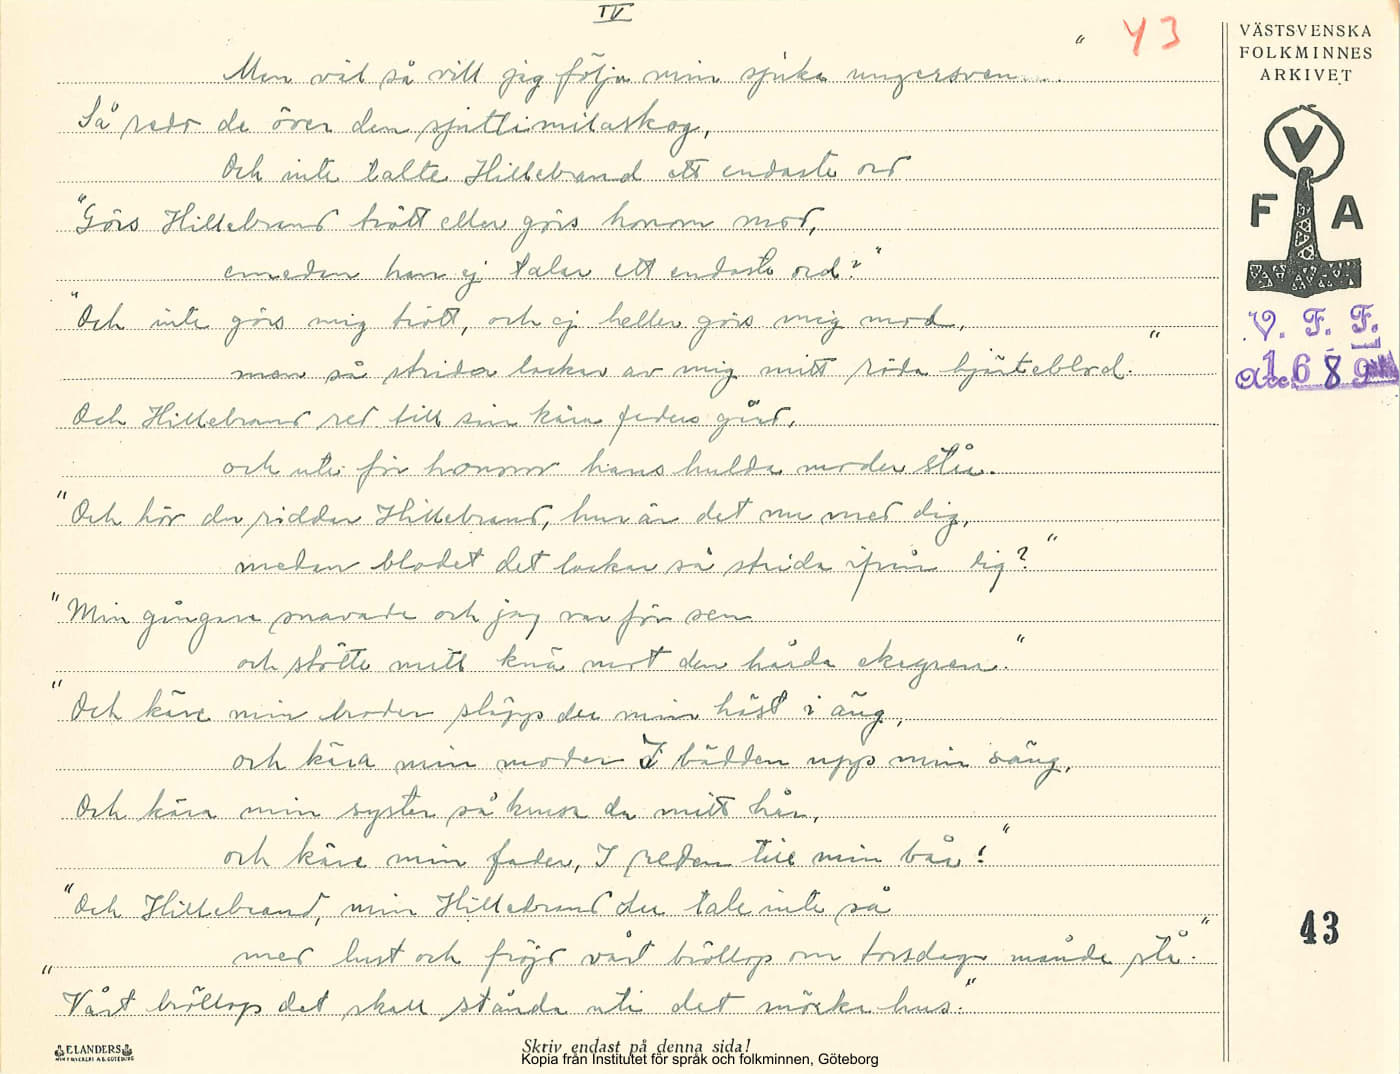 IV
43
Men väl så vill jag följa min sjuka ungersven...."
Så redo de över den sjuttimilaskog,
Och inte talte Hillebrand ett endaste ord
"Görs Hillebrand trött eller görs honom mod,
emedan han ej talar ett endaste ord?"
"Och inte görs mig trött, och ej heller görs mig mod,
men så strida lackar av mig mitt röda hjärteblod."
Och Hillebrand red till sin kära faders gård,
och ute för honom hans hulda moder står.
"Och hör du riddar Hillebrand, hur är det nu med dig,
medan blodet det lackar så strida ifrån dig?"
"Min gångare snavade och jag var för sen
och stötte mitt knä mot den hårda ekegren."
"Och käre min broder släpp du min häst i äng,
och kära min moder I bädden upp min säng,
Och kära min syster så krusa du mitt hår,
och käre min fader, I reden till min bår!"
"Och Hillebrand, min Hillebrand du tale inte så
med lust och fröjd vårt bröllop om torsdag månde stå."
"Vårt bröllop det skall stånda uti det mörka hus."
VÄSTSVENSKA
FOLKMINNES
ARKIVET
V
F A
V. F. F.
Acc. 1689
43
ELANDERS
Skriv endast på denna sida!
Kopia från Institutet för språk och folkminnen, Göteborg